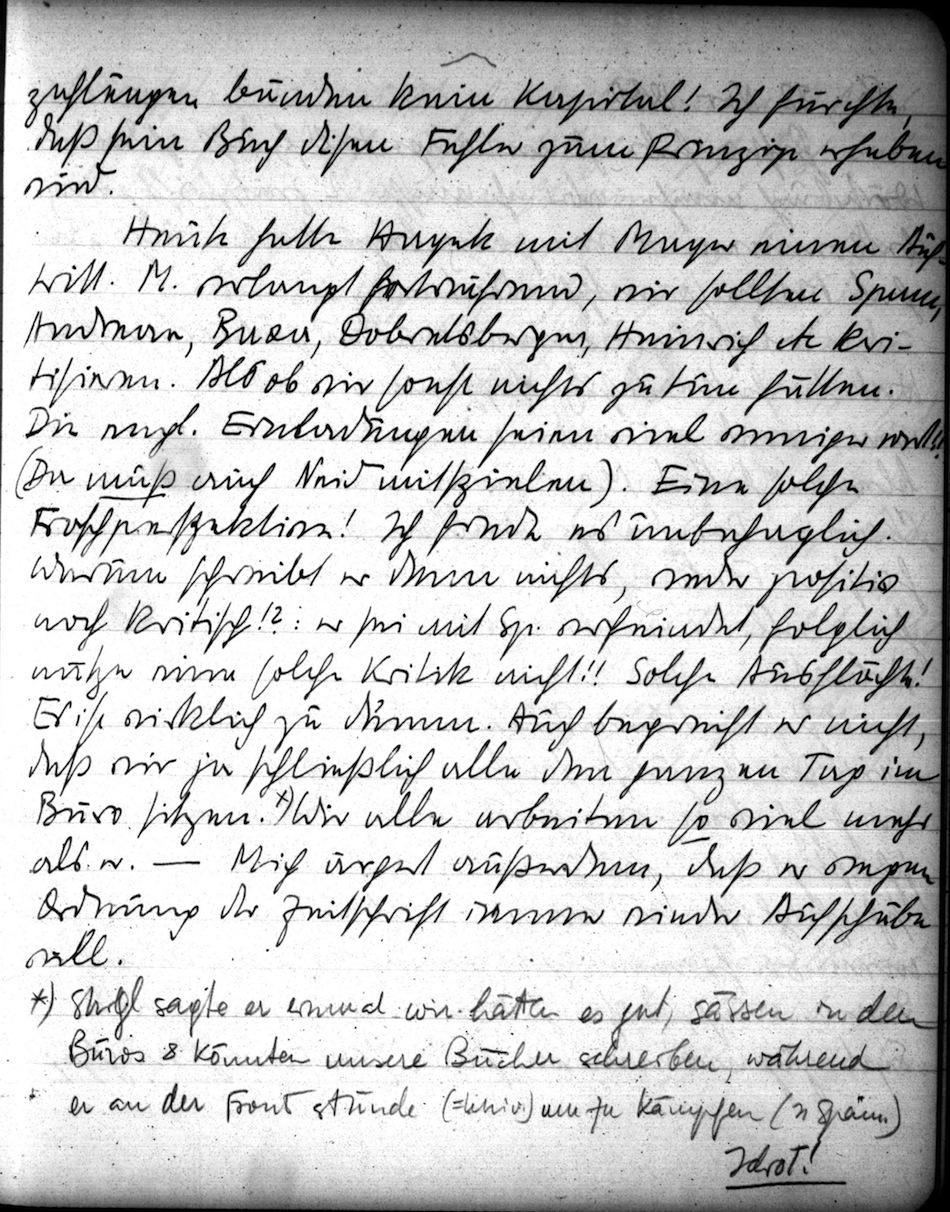 zahlungen bünden kein Kapital! Ich fürchte,
daß sein Buch diesen Fehler zum Prinzip erheben
wird.
Heute hatte Hayek mit Mayer einen Auf-
tritt. M. verlangt fortwährend, wir sollten Spann,
Andreae, Bauer, Dobretsberger, Heinrich etc kri-
tisieren. Als ob wir sonst nichts zu tun hätten.
Die engl. Einladungen seien viel weniger wert!!
(Da muß auch Neid mitspielen). Eine solche
Froschperspektive! Ich finde es unbehaglich.
Warum schreibt er denn nichts, weder positiv
noch kritisch!?: er sei mit Sp. verfeindet, folglich
nütze eine solche Kritik nicht!! Solche Ausflüchte!
Er ist wirklich zu dumm. Auch begreift er nicht,
daß wir ja schließlich alle den ganzen Tag im
Büro sitzen.*) Wir alle arbeiten so viel mehr
als er. — Mich ärgert außerdem, daß er wegen
Ordnung der Zeitschrift immer wieder Aufschube
will.
*) sagte er einmal wir hätten es gut, sässen in den
Büros & könnten unsere Bücher schreiben, während
er an der Front stünde (=Univ.) um zu kämpfen (Spann)
Idiot!